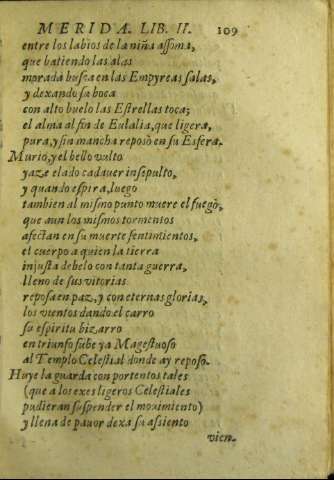 MERIDA. LIB. II. 109
entre los labios de la niña assoma,
que batiendo las alas
morada busca en las Empyreas salas,
y dexando su boca
con alto buelo las Estrellas toca;
el alma al fin de Eulalia, que ligera,
pura, y sin mancha reposò en su Esfera.
Murio, y el bello vulto
yaze elado cadauer insepulto,
y quando espira, luego
tambien al mismo punto muere el fuego,
que aun los mismos tormentos
afectan en su muerte sentimientos,
el cuerpo a quien la tierra
injusta debelo con tanta guerra,
lleno de sus vitorias
reposa en paz, y con eternas glorias,
los vientos dando el carro
su espiritu bizarro
en triunfo sube ya Magestuoso
al Templo Celestial donde ay reposo.
Huye la guarda con portentos tales
(que a los exes ligeros Celestiales
pudieran suspender el mouimiento)
y llena de pauor dexa su assiento
vien-